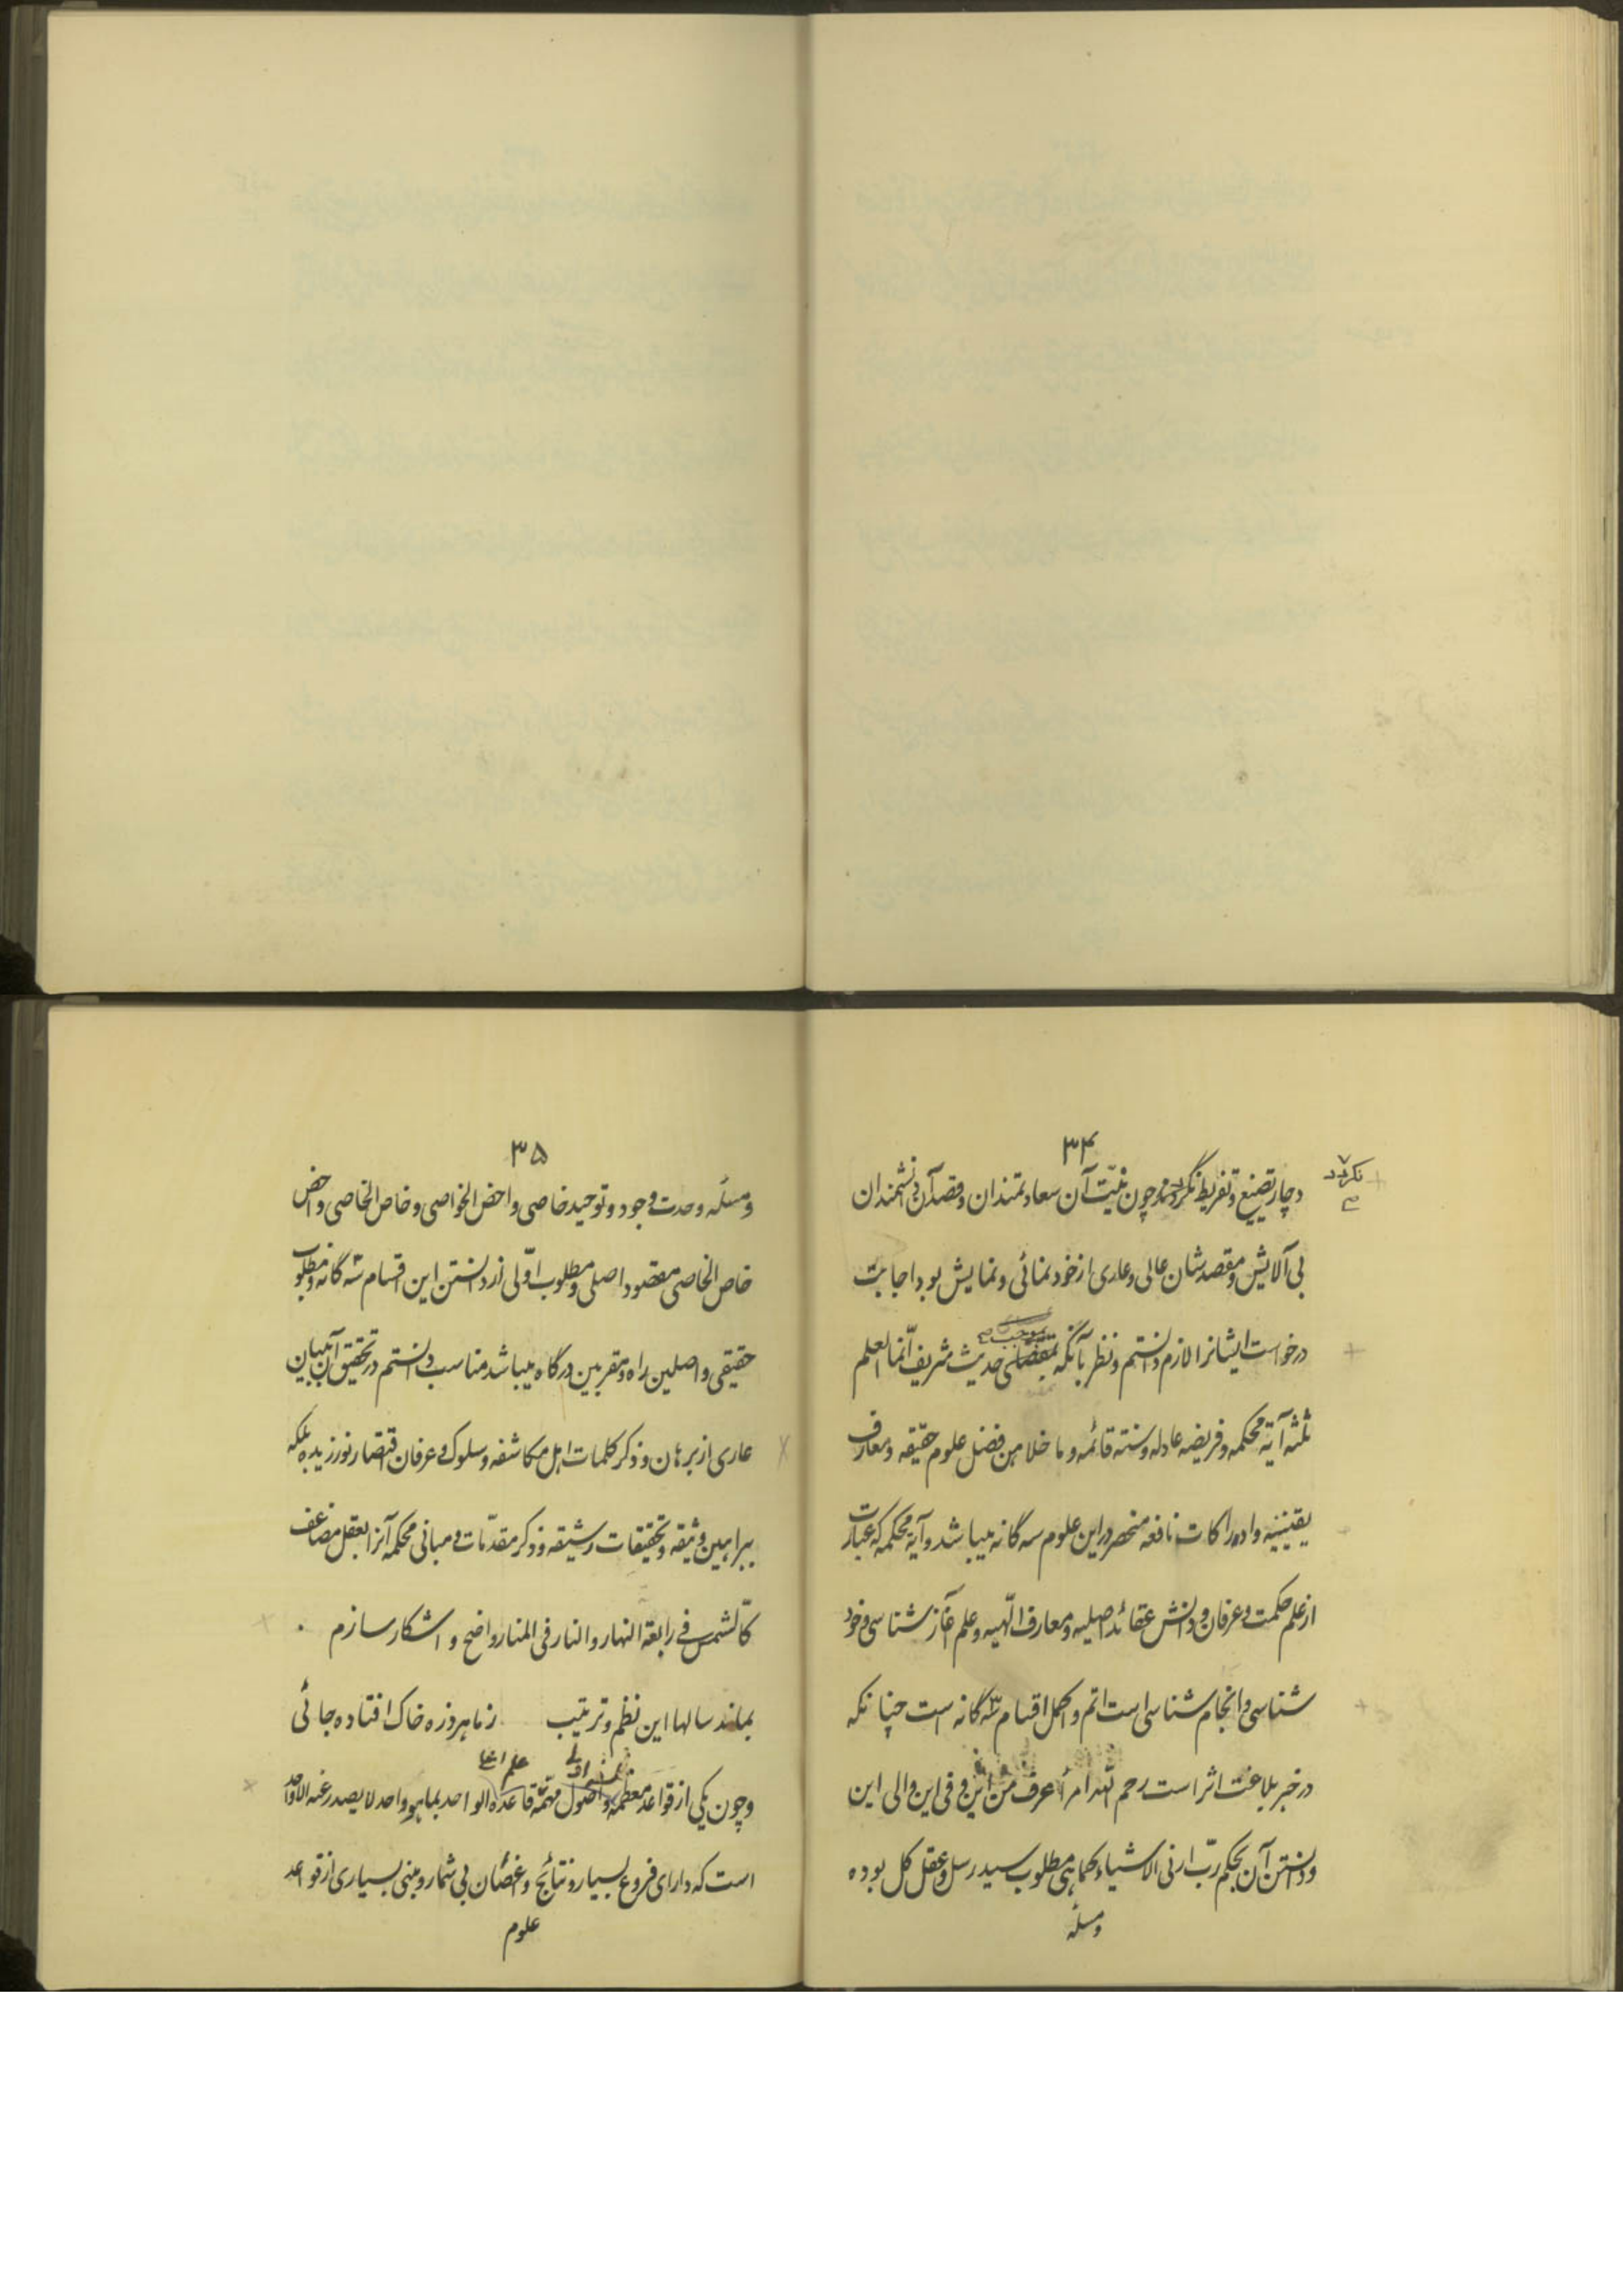 ۳۴
دچار تضییع و تفریط نگردد و چون نیّت آن سعادتمندان و قصد آن دانشمندان
نگردد
بی آلایش و مقصدشان عالی و عاری از خودنمائی و نمایش بود اجابت
درخواست ایشانرا لازم دانستم و نظر بآنکه بمقتضای حدیث شریف انّما العلم
بموجب
ثلثه آیة محکمه و فریضه عادله و سنته قائمه و ما خلا هن فضل علوم حقیقه و معارف
یقینیه و ادراکات نافعه منحصر در این علوم سه گانه میباشد و آیة محکمه که عبارت
از علم حکمت و عرفان و دانش عقائد اصلیه و معارف الٓهیه و علم آغاز شناسی و خود
شناسی و انجام شناسی است اتم و اکمل اقسام سه گانه است چنانکه
در خبر بلاغت اثر است رحم الله امرأ عرف من این و فی این والی این
و دانستن آن بحکم ربّ ارنی الاشیاء کماهی مطلوب سید رسل و عقل کل بوده
و مسئله
۳۵
و مسئله وحدت وجود و توحید خاصی و اخص الخواصی و خاص الخاصی و اخص
خاص الخاصی مقصود اصلی و مطلوب اوّلی از دانستن این اقسام سه گانه و مطلوب
حقیقی واصلین راه و مقربین درگاه میباشد مناسب دانستم در تحقیق آن ببیان
عاری از برهان و ذکر کلمات اهل مکاشفه و سلوک و عرفان اقتصار نورزیده بلکه
ببراهین وثیقه و تحقیقات رشیقه و ذکر مقدّمات و مبانی محکمه آنرا بعقل مضاعف
کالشمس فی رابعة النهار و النار فی المنار واضح و اشکار سازم .
بماند سالها این نظم و ترتیب ز ما هر ذره خاک افتاده جائی
علم اعلی
و چون یکی از قواعد معظمه و اصول مهمّه قاعده الواحد بما هو واحد لا یصدر عنه الا الواحد
است که دارای فروع بسیار و نتایج و اغصان بی شمار و مبنی بسیاری از قواعد
علوم